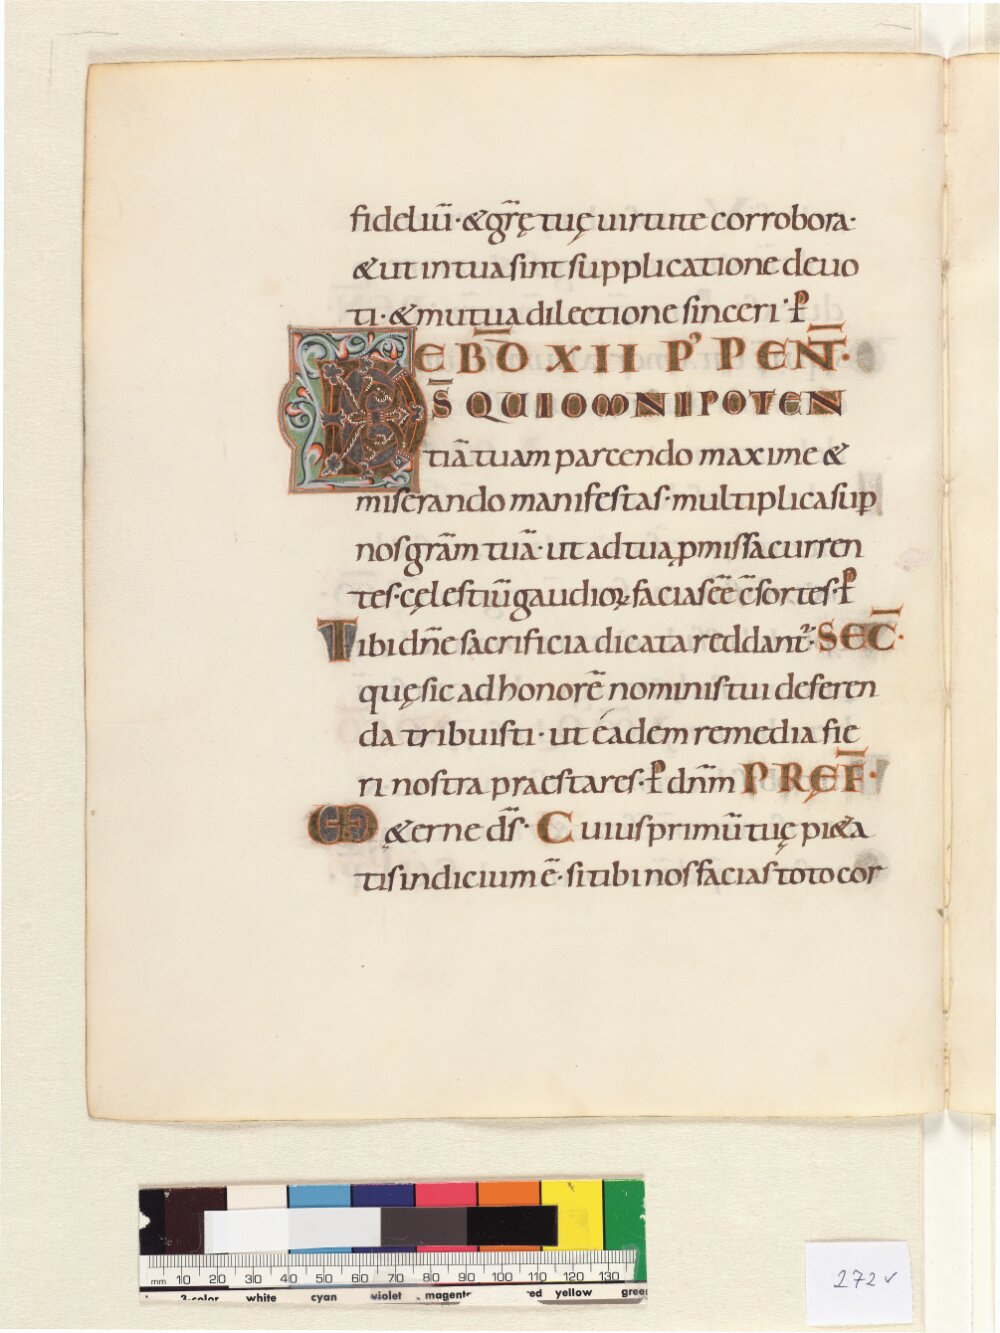 fideliū· & gr̄ę tuę uirtute corrobora·
& ut in tua sint supplicatione deuo
ti· & mutua dilectione sinceri· ꝑ
EBD̄ XII P' PENT̄·
D S̄ QUI OMNIPOTEN
tiā tuam parcendo maxime &
miserando manifestas· multiplica sup̱
nos grām tuā· ut ad tua ꝓmissa curren
tes· cęlestiū gaudioꝝ facias eē c̄sortes· ꝑ
Tibi dn̄e sacrificia dicata reddant᷑· SEC̄·
quę sic ad honorē nominis tui deferen
da tribuisti· ut eadem remedia fie
ri nostra praestares· ꝑ dn̄m PRĘF̄·
Ę &erne ds̄· Cuius primū tuę pi&a
tis indicium ē· si tibi nos facias toto cor
mm 10 20 30 40 50 60 70 80 90 100 110 120 130
3-color white cyan violet magenta red yellow green
272v